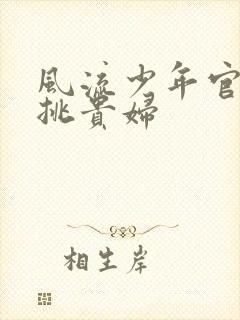 風流少年官
挑貴婦
相生岸